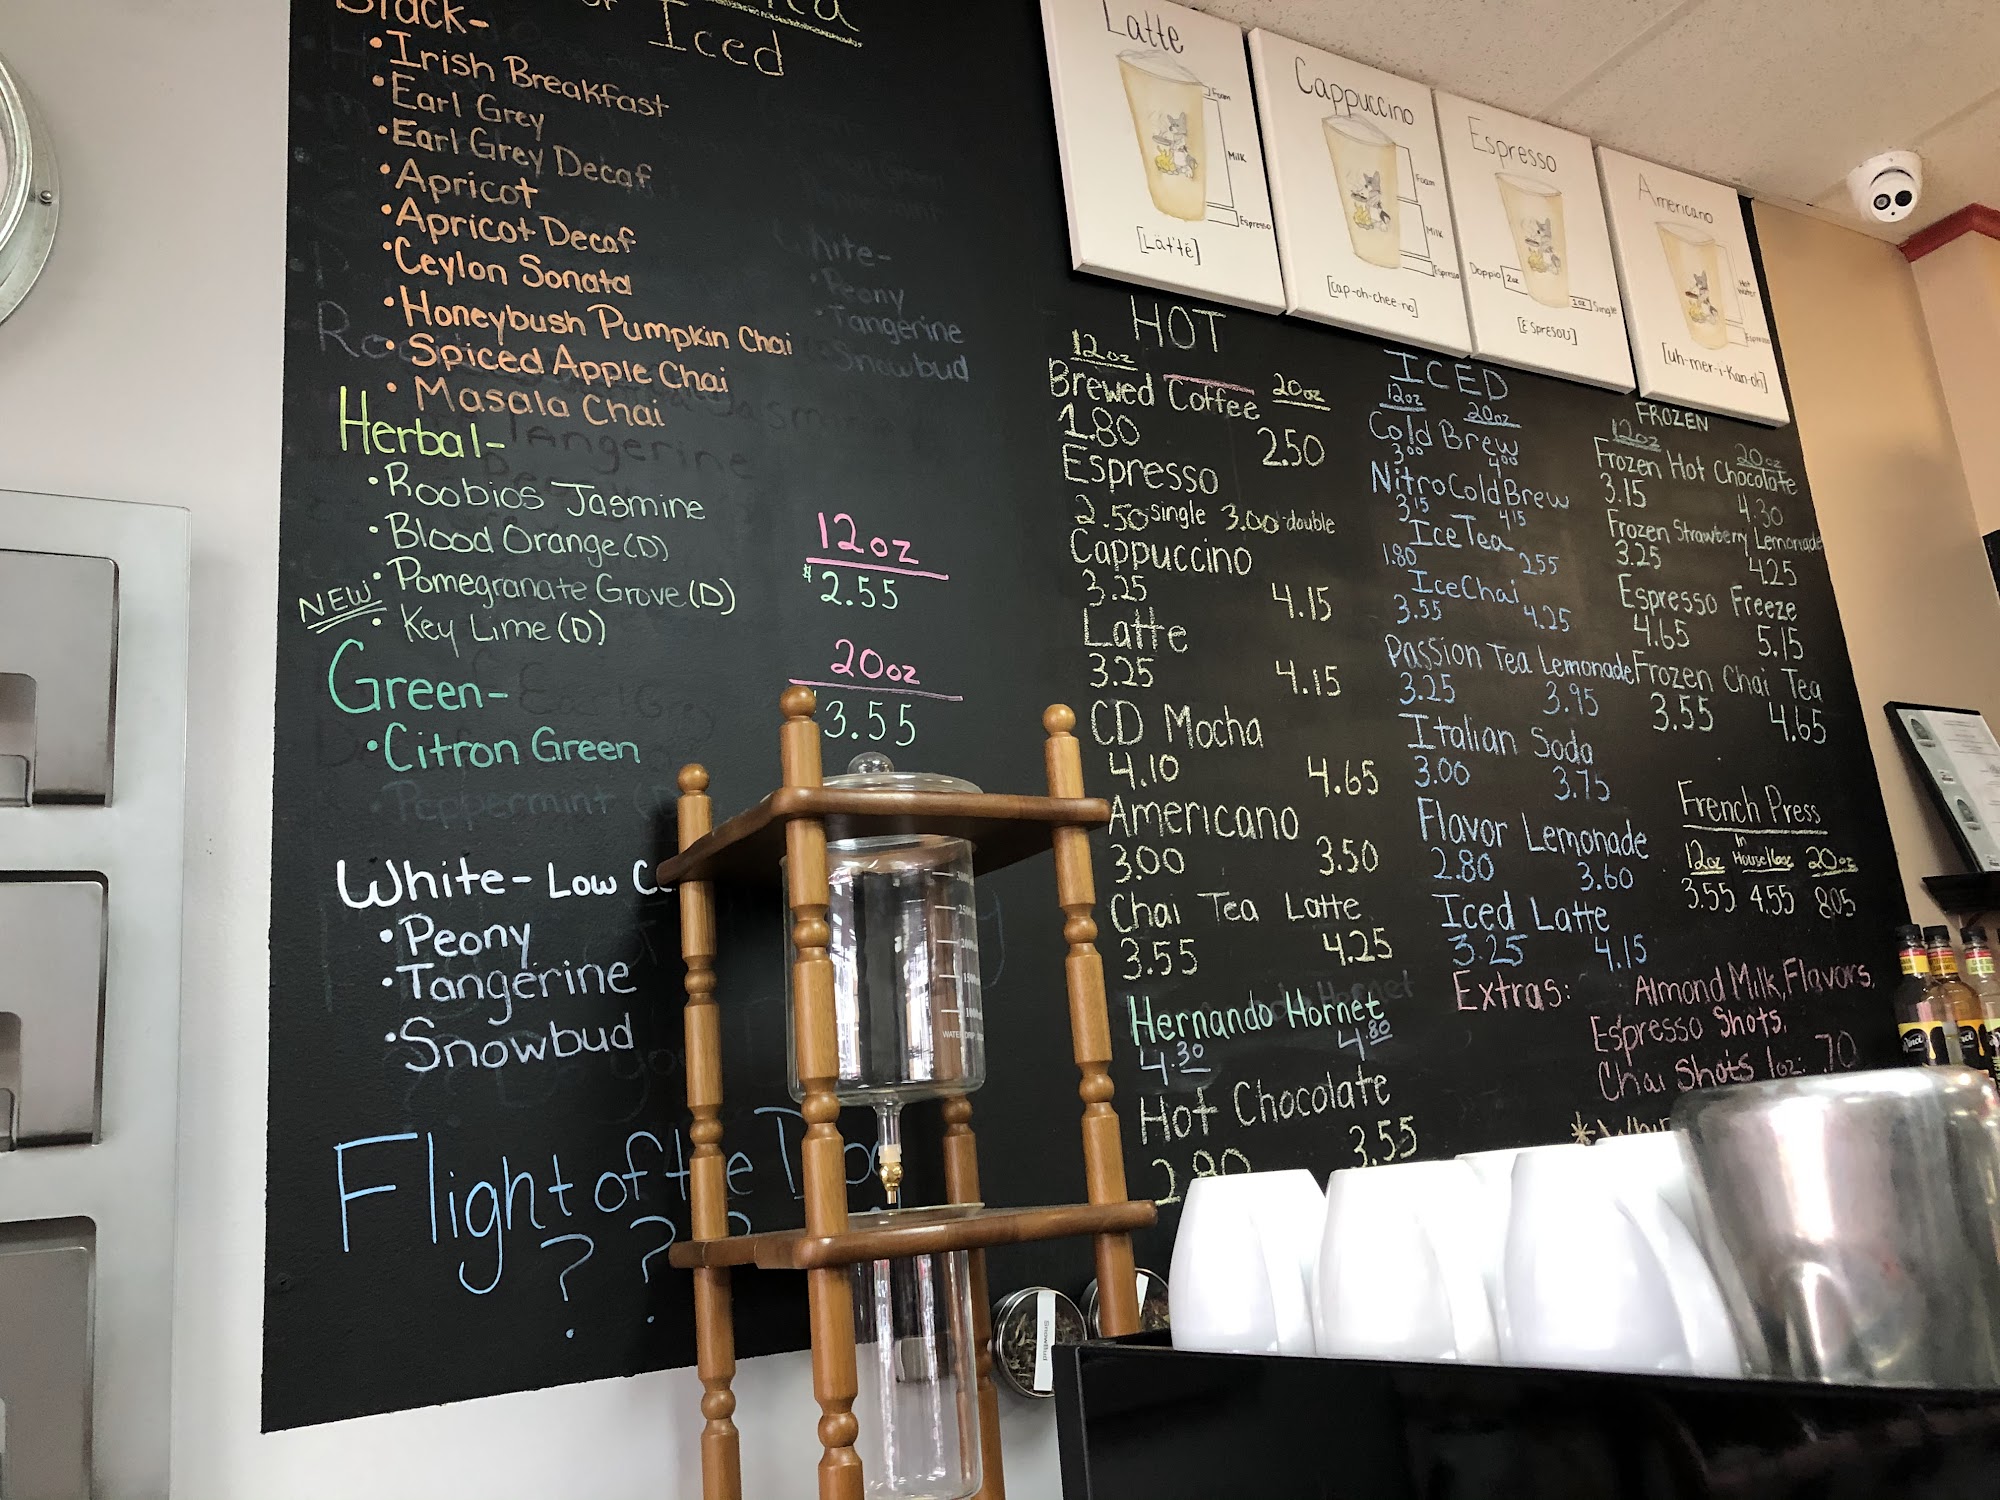 Black-
or Iced
• Irish Breakfast
• Earl Grey
• Earl Grey Decaf
• Apricot
• Apricot Decaf
• Ceylon Sonata
• Honeybush Pumpkin Chai
• Spiced Apple Chai
• Masala Chai
Herbal-
• Roobios Jasmine
• Blood Orange (D)
• Pomegranate Grove (D)
NEW • Key Lime (D)
Green-
• Citron Green
Peppermint
White- Low
• Peony
• Tangerine
• Snowbud
12oz
$2.55
20oz
3.55
Flight of the
? ? ?
White-
• Peony
• Tangerine
• Snowbud
Latte
Foam
Milk
Espresso
[Lät'tē]
Cappuccino
Foam
Milk
Espresso
[cap-oh-chee-no]
Espresso
Doppio 2oz
1oz Single
[ESpresoU]
Americano
Hot Water
Espresso
[uh-mer-i-Kan-oh]
HOT
12oz
Brewed Coffee 20oz
1.80 2.50
Espresso
2.50 single 3.00 double
Cappuccino
3.25 4.15
Latte
3.25 4.15
CD Mocha
4.10 4.65
Americano
3.00 3.50
Chai Tea Latte
3.55 4.25
Hernando Hornet
4.30 4.80
Hot Chocolate
2.80 3.55
ICED
12oz 20oz
Cold Brew
3.00 4.00
Nitro Cold Brew
3.15 4.15
Ice Tea
1.80 2.55
Ice Chai
3.55 4.25
Passion Tea Lemonade
3.25 3.95
Italian Soda
3.00 3.75
Flavor Lemonade
2.80 3.60
Iced Latte
3.25 4.15
FROZEN
12oz 20oz
Frozen Hot Chocolate
3.15 4.30
Frozen Strawberry Lemonade
3.25 4.25
Espresso Freeze
4.65 5.15
Frozen Chai Tea
3.55 4.65
French Press
12oz In House 16oz 20oz
3.55 4.55 8.05
Extras: Almond Milk, Flavors,
Espresso Shots,
Chai Shots 1oz: .70
Snowbud